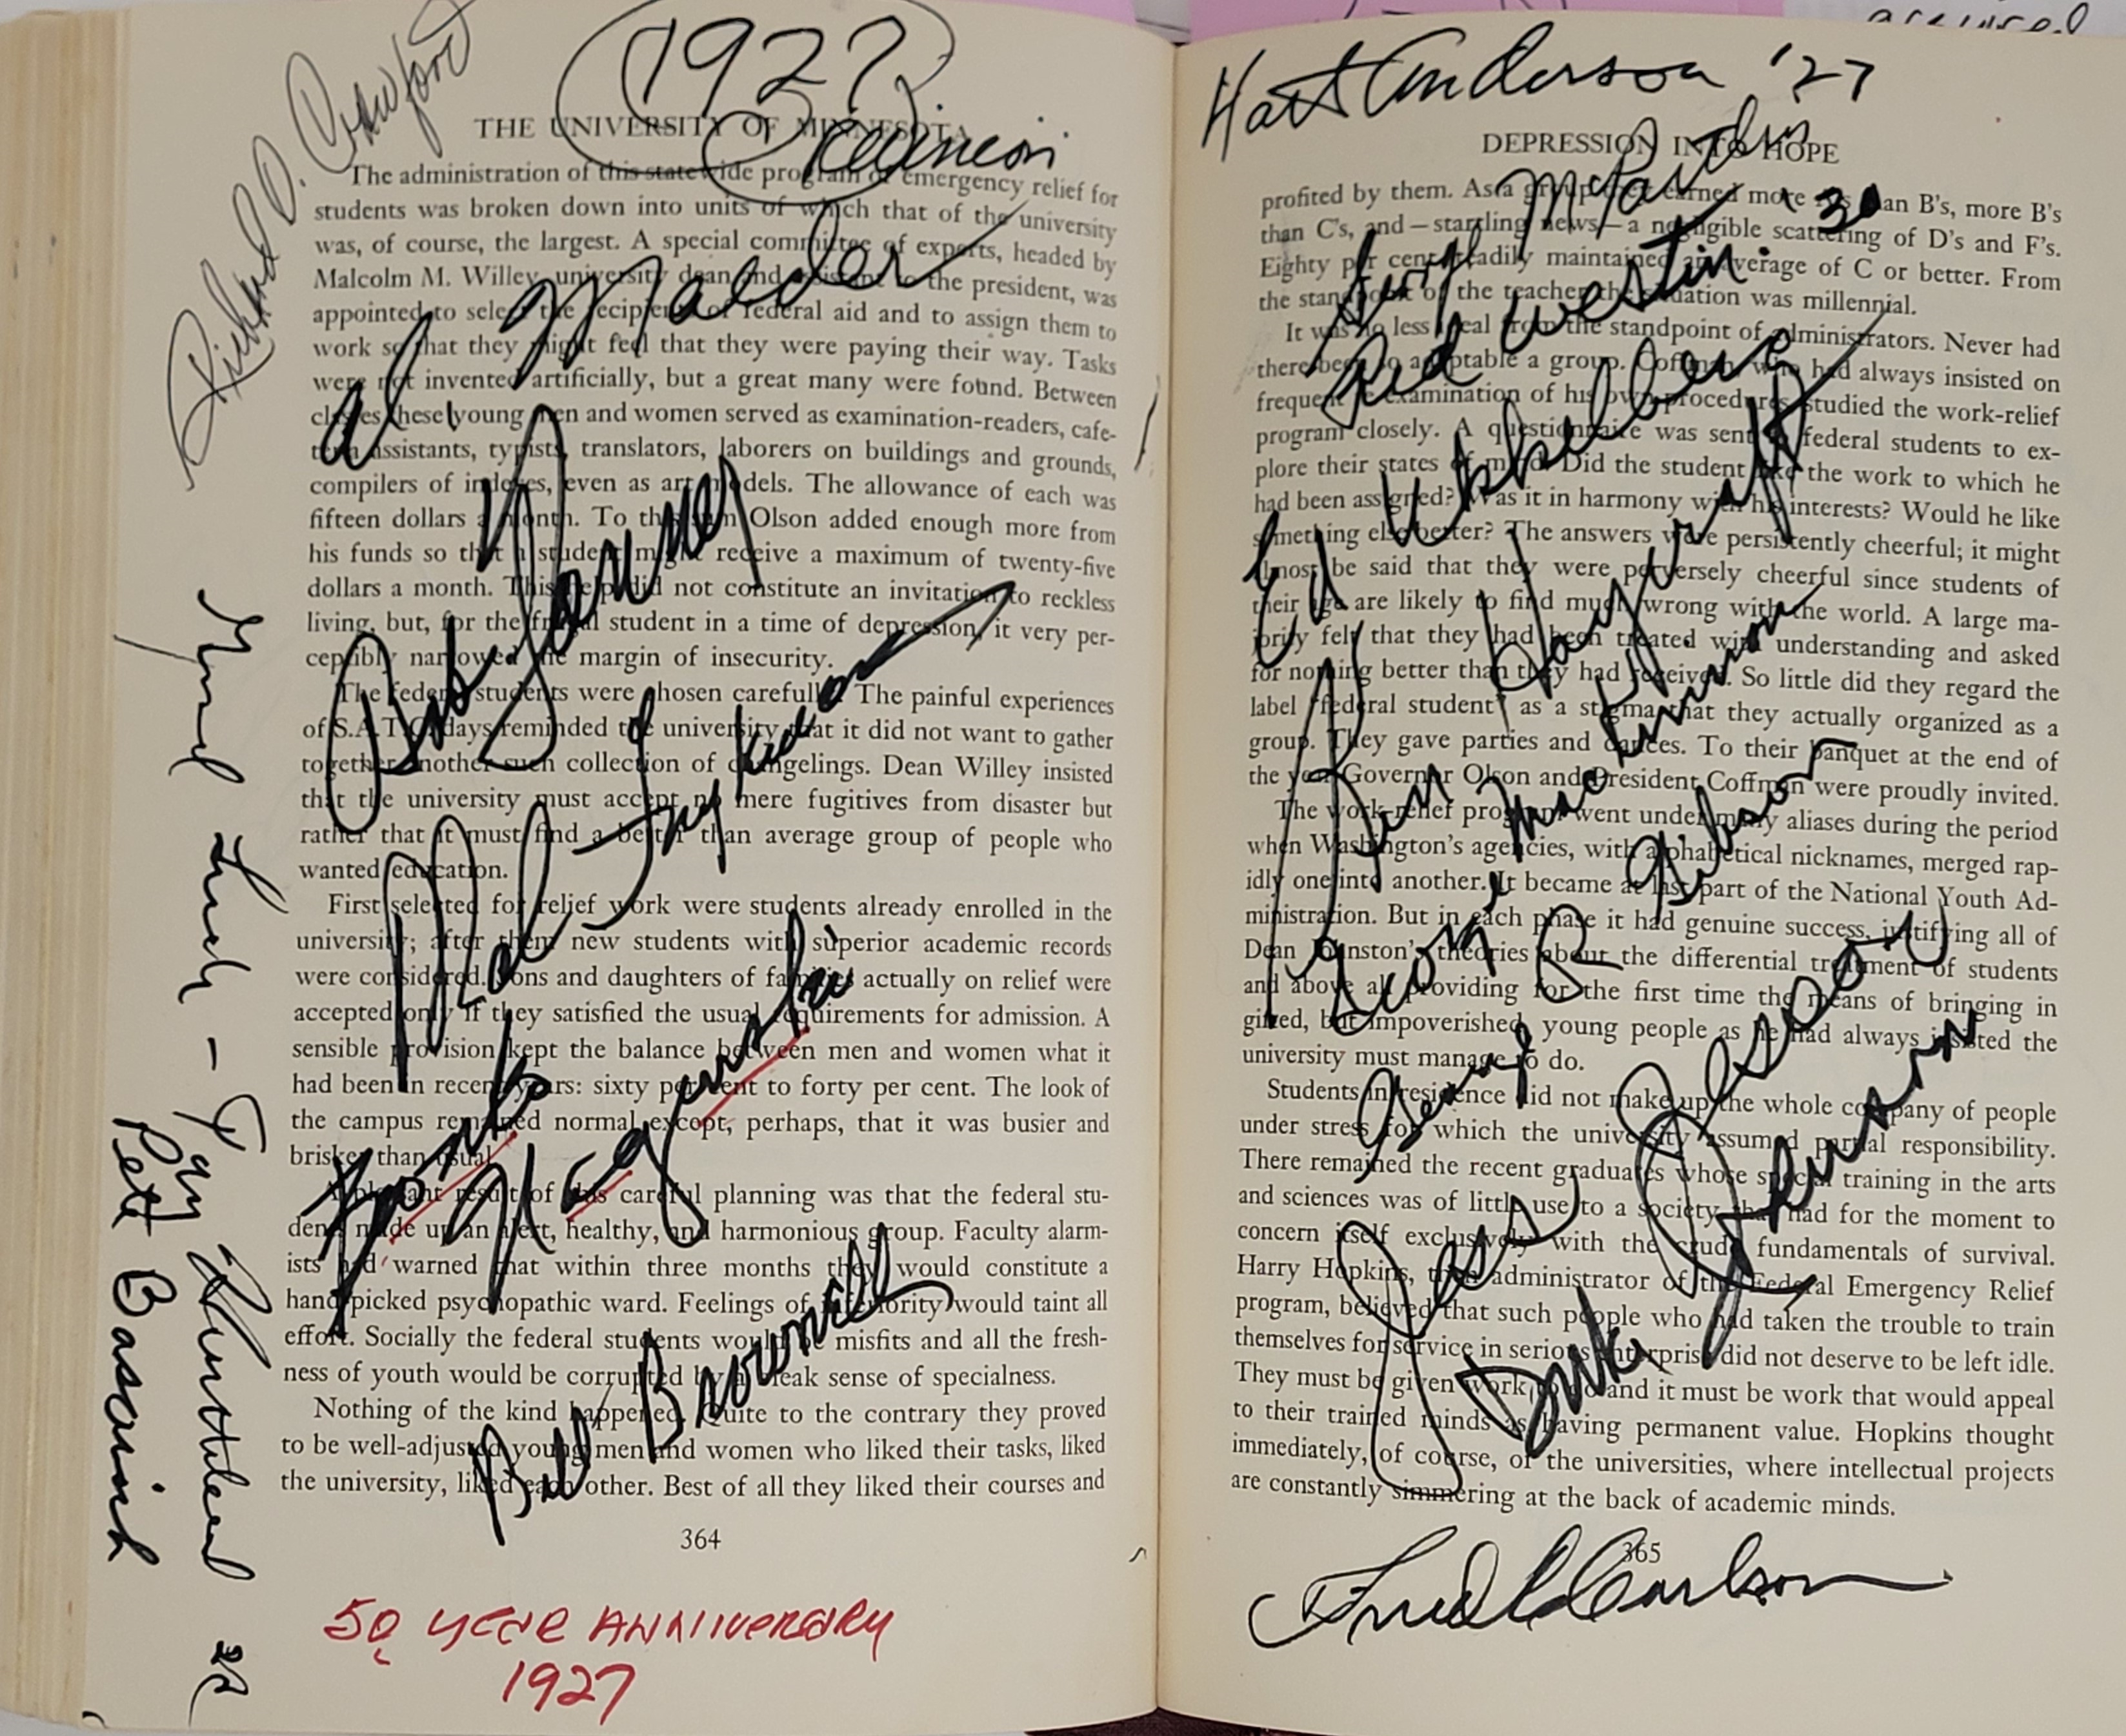 acquired
1927
Reunion
Richard D. Crawford
THE UNIVERSITY OF MINNESOTA
The administration of this statewide program of emergency relief for
students was broken down into units of which that of the university
was, of course, the largest. A special committee of experts, headed by
Malcolm M. Willey, university dean and assistant to the president, was
appointed to select the recipients of federal aid and to assign them to
work so that they might feel that they were paying their way. Tasks
were not invented artificially, but a great many were found. Between
classes these young men and women served as examination-readers, cafe-
teria assistants, typists, translators, laborers on buildings and grounds,
compilers of indexes, even as art models. The allowance of each was
fifteen dollars a month. To this sum Olson added enough more from
his funds so that a student might receive a maximum of twenty-five
dollars a month. This help did not constitute an invitation to reckless
living, but, for the frugal student in a time of depression, it very per-
ceptibly narrowed the margin of insecurity.
The federal students were chosen carefully. The painful experiences
of S.A.T.C. days reminded the university that it did not want to gather
together another such collection of changelings. Dean Willey insisted
that the university must accept no mere fugitives from disaster but
rather that it must find a better than average group of people who
wanted education.
First selected for relief work were students already enrolled in the
university; after them new students with superior academic records
were considered. Sons and daughters of families actually on relief were
accepted only if they satisfied the usual requirements for admission. A
sensible provision kept the balance between men and women what it
had been in recent years: sixty per cent to forty per cent. The look of
the campus remained normal except, perhaps, that it was busier and
brisker than usual.
A pleasant result of this careful planning was that the federal stu-
dents made up an alert, healthy, and harmonious group. Faculty alarm-
ists had warned that within three months they would constitute a
handpicked psychopathic ward. Feelings of inferiority would taint all
effort. Socially the federal students would be misfits and all the fresh-
ness of youth would be corrupted by a bleak sense of specialness.
Nothing of the kind happened. Quite to the contrary they proved
to be well-adjusted young men and women who liked their tasks, liked
the university, liked each other. Best of all they liked their courses and
364
Al Maeder
Mal
Bronko
Nagurski
Bill Brownell
Pete Bascinh
50 YEAR ANNIVERSARY
1927
Hart Anderson '27
DEPRESSION INTO HOPE
profited by them. As a group they earned more A's than B's, more B's
than C's, and—startling news—a negligible scattering of D's and F's.
Eighty per cent readily maintained an average of C or better. From
the standpoint of the teacher the situation was millennial.
It was no less ideal from the standpoint of administrators. Never had
there been so adaptable a group. Coffman, who had always insisted on
frequent re-examination of his own procedures, studied the work-relief
program closely. A questionnaire was sent to federal students to ex-
plore their states of mind. Did the student like the work to which he
had been assigned? Was it in harmony with his interests? Would he like
something else better? The answers were persistently cheerful; it might
almost be said that they were perversely cheerful since students of
their age are likely to find much wrong with the world. A large ma-
jority felt that they had been treated with understanding and asked
for nothing better than they had received. So little did they regard the
label "federal student" as a stigma that they actually organized as a
group. They gave parties and dances. To their banquet at the end of
the year Governor Olson and President Coffman were proudly invited.
The work-relief program went under many aliases during the period
when Washington's agencies, with alphabetical nicknames, merged rap-
idly one into another. It became at last part of the National Youth Ad-
ministration. But in each phase it had genuine success, justifying all of
Dean Johnston's theories about the differential treatment of students
and above all providing for the first time the means of bringing in
gifted, but impoverished, young people as he had always insisted the
university must manage to do.
Students in residence did not make up the whole company of people
under stress for which the university assumed partial responsibility.
There remained the recent graduates whose special training in the arts
and sciences was of little use to a society that had for the moment to
concern itself exclusively with the crude fundamentals of survival.
Harry Hopkins, then administrator of the Federal Emergency Relief
program, believed that such people who had taken the trouble to train
themselves for service in serious enterprise did not deserve to be left idle.
They must be given work to do and it must be work that would appeal
to their trained minds as having permanent value. Hopkins thought
immediately, of course, of the universities, where intellectual projects
are constantly simmering at the back of academic minds.
365
'30
Red Westin
Ed Ukkelberg
Herm Haycraft
George MacKinnon
George R Gibson
Duke Johnson
Fred L Carlson